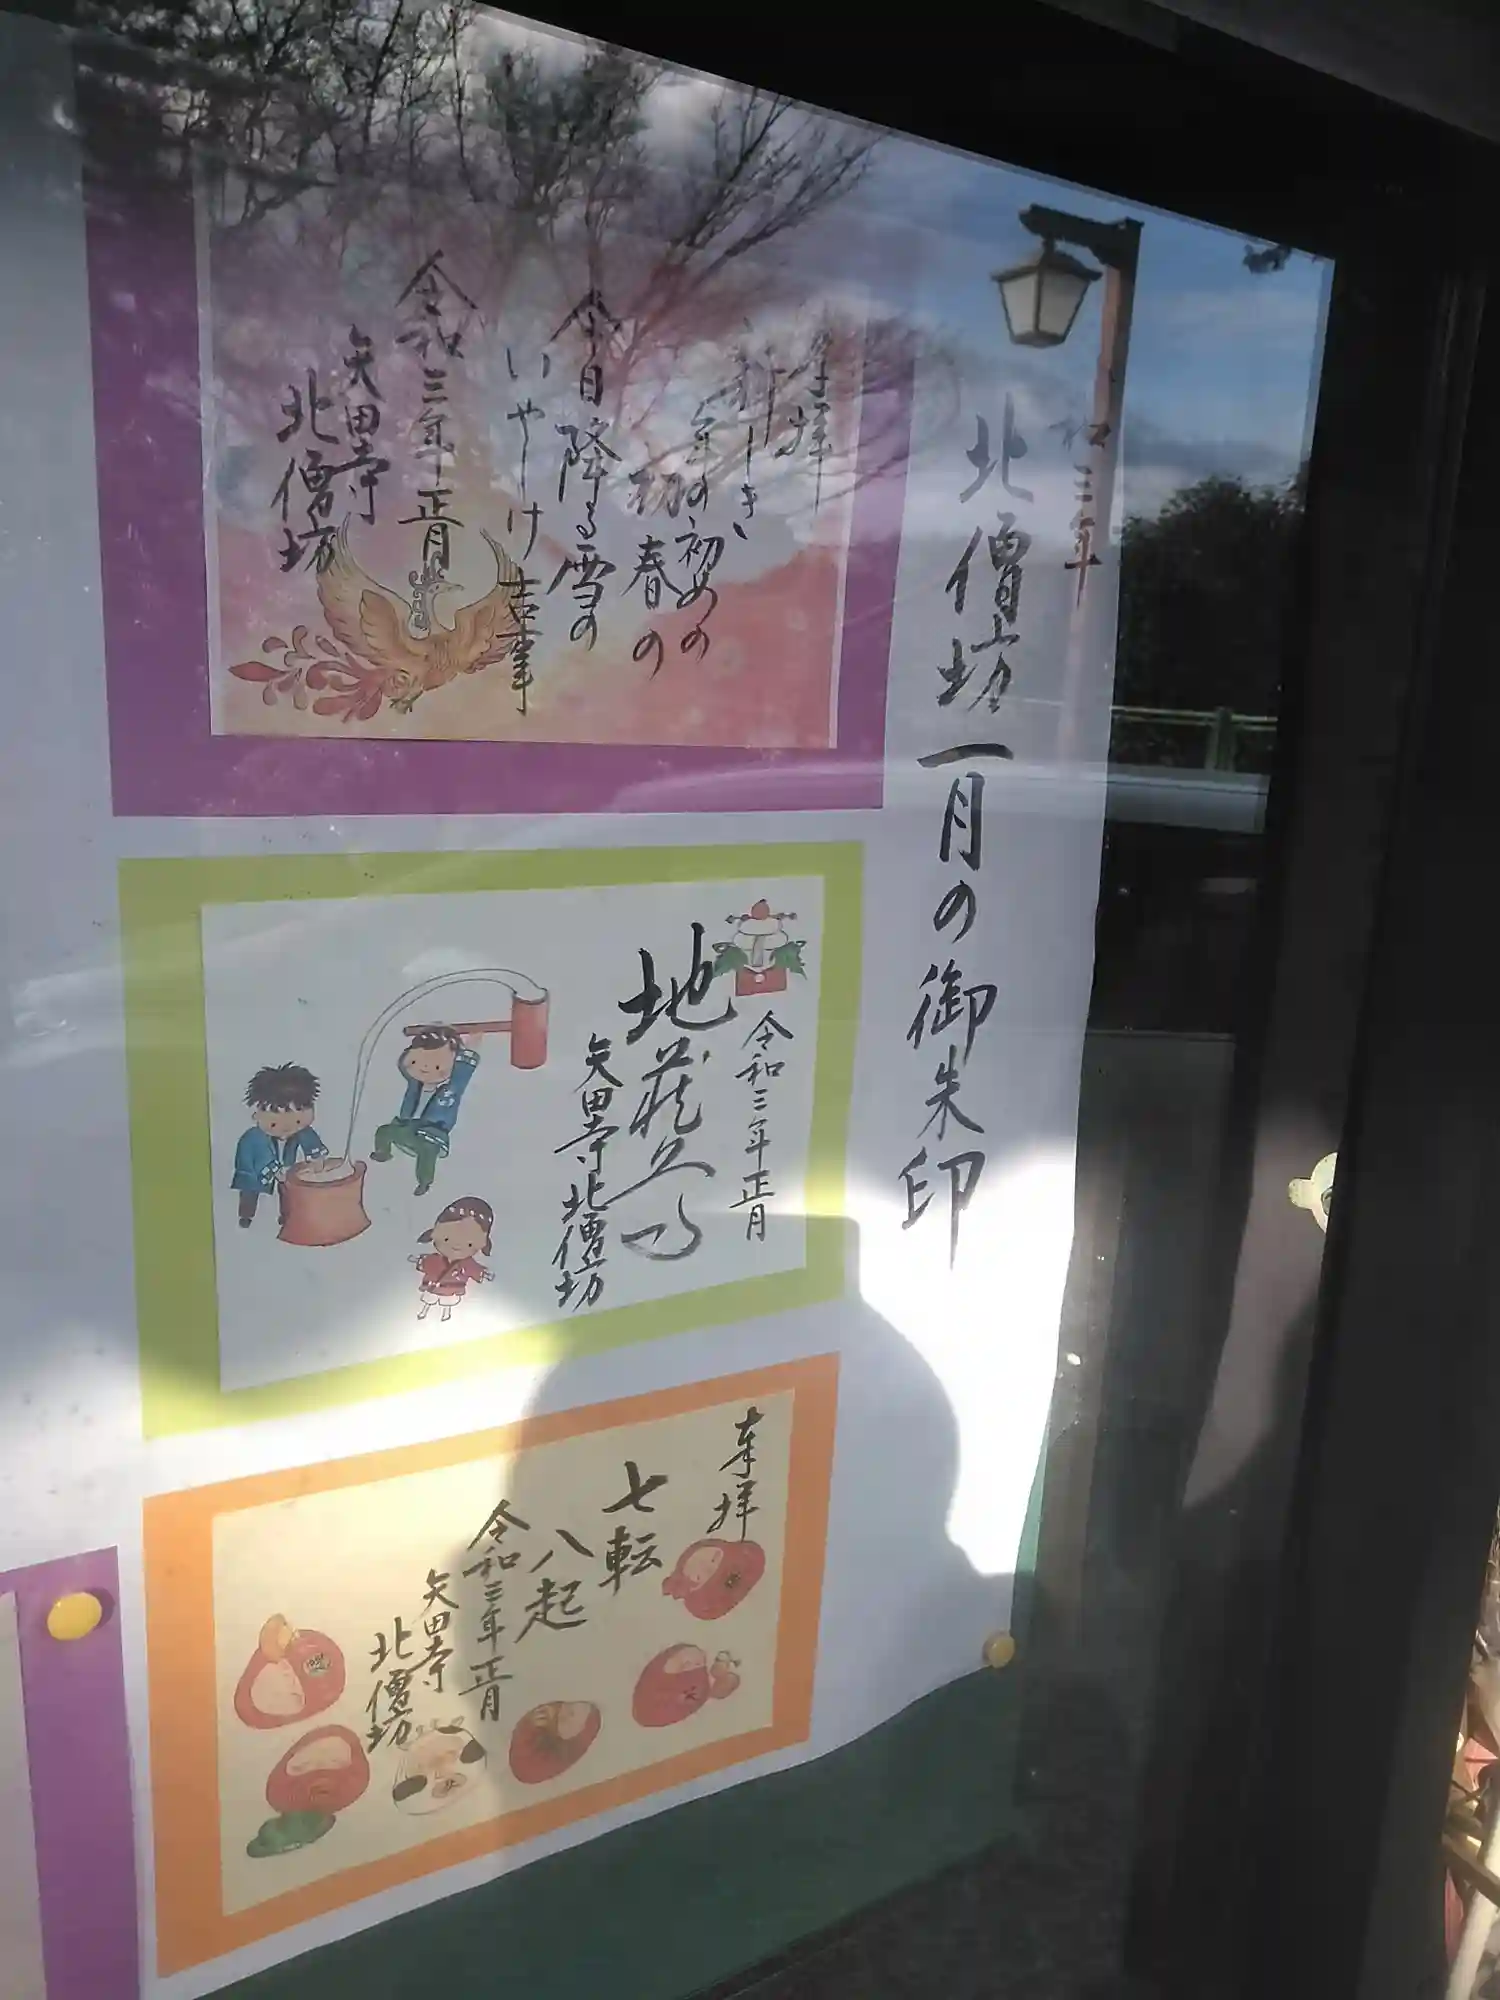 和三年
北僧坊一月の御朱印
奉拝
新しき
年の初めの
初春の
今日降る雪の
いやしけ吉事
令和三年正月
矢田寺
北僧坊
令和三年正月
地蔵尊
矢田寺北僧坊
奉拝
七転
八起
令和三年正月
矢田寺
北僧坊